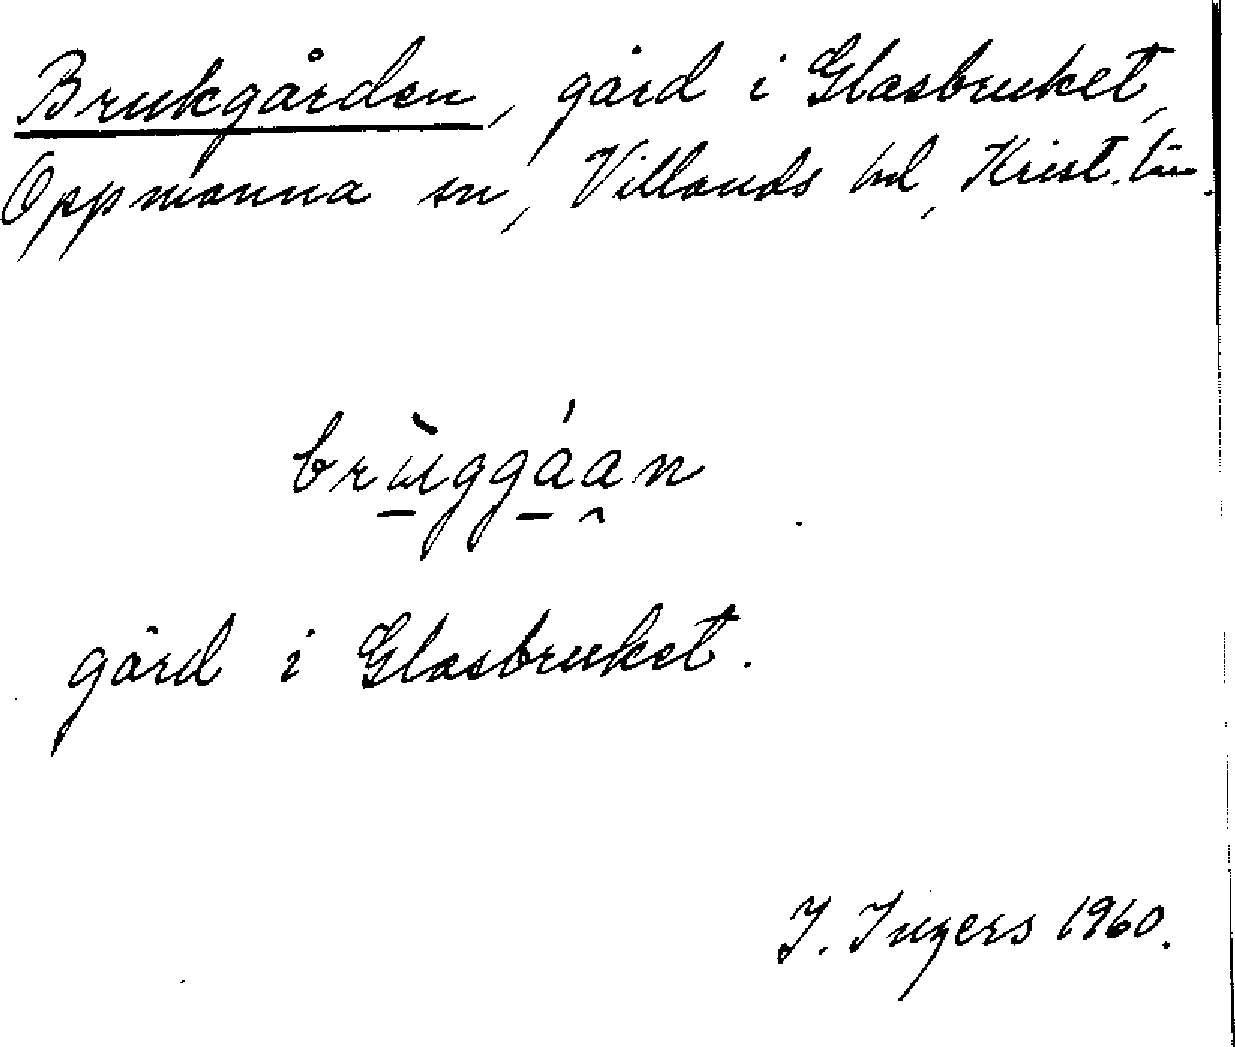 Brukgården, gård i Glasbruket,
Oppmanna sn, Villands hd, Krist. län.
brùggáan
gård i Glasbruket.
I. Ingers 1960.